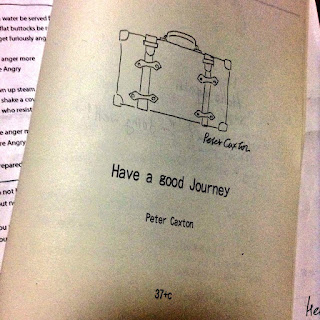 water be served
flat buttocks be
get furiously ang
anger more
e Angry
n up steam
shake a cov
who resist
e anger m
re Angry
repared
Peter Caxton
Have a good Journey
Peter Caxton
37+c